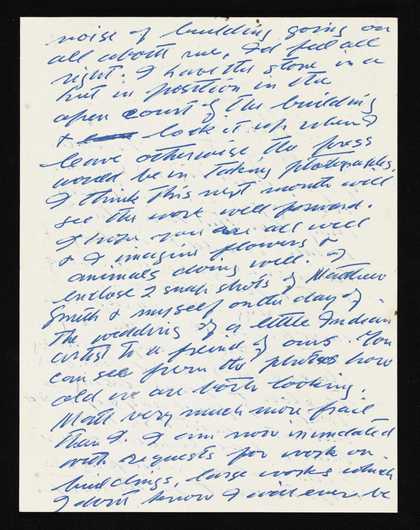 noise of building going on
all about me, I'd feel all
right. I have the stone in a
hut in position in the
open court of the building
& lock it up when I
leave otherwise the press
would be in taking photographs.
I think this next month will
see the work well forward.
I hope you are all well
& I imagine flowers &
animals doing well. I
enclose 2 snap shots of Matthew
Smith & myself on the day of
the wedding of a little Indian
artist to a friend of ours. You
can see from the photos how
old we are both looking.
Matt very much more frail
than I. I am now inundated
with requests for work on
buildings, large works which
I don't know I will ever be